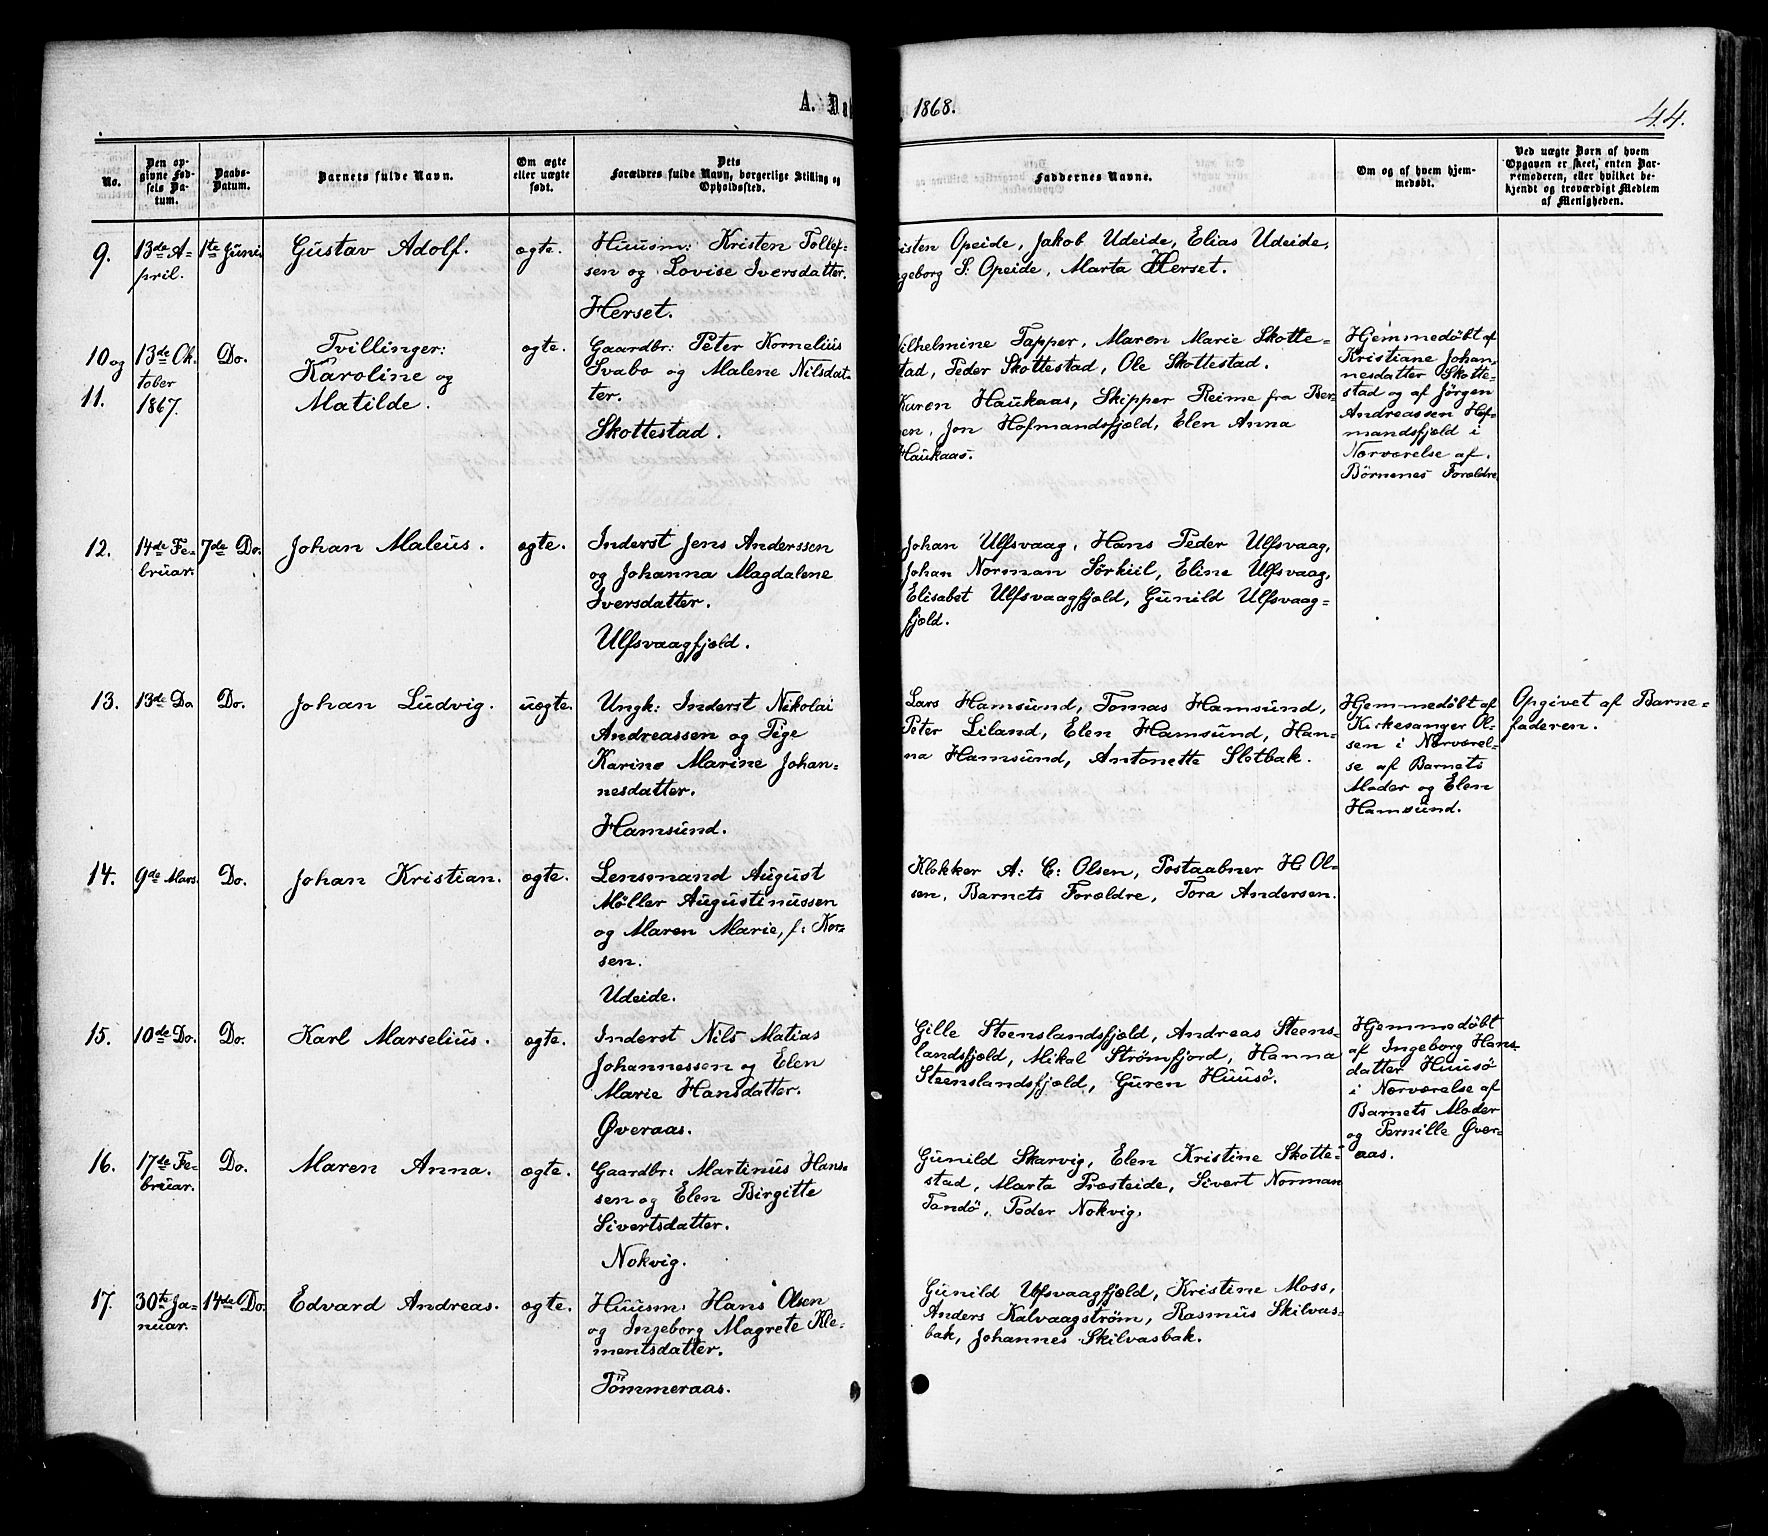 A. Dø
1868.
44.
No.
Den op-
givne Fød-
sels Da-
tum.
Daabs-
Datum.
Barnets fulde Navn.
Om ægte
eller uægte
født.
Dets
Forældres fulde Navn, borgerlige Stilling og
Opholdssted.
Faddernes Navne.
Om og af hvem hjem-
medøbt.
Ved uægte Børn af hvem
Opgaven er skeet, enten Bar-
nemoderen, eller hvilket be-
kjendt og troværdigt Medlem
af Menigheden.
9.
13de A-
pril.
1te Juni.
Gustav Adolf.
ægte.
Huusm: Kristen Tollef-
sen og Lovise Iversdatter.
Herset.
isten Opeide, Jakob Udeide, Elias Udeide,
ngeborg S. Opeide, Marta Herset.
10 og
11.
13de Ok-
tober
1867.
Do.
Tvillinger:
Karoline og
Matilde.
ægte.
Gaardbr: Peter Kornelius
Svabo og Malene Nilsdat-
ter.
Skottestad.
Vilhelmine Tapper, Maren Marie Skotte-
tad, Peder Skottestad, Ole Skottestad.
Karen Haukaas, Skipper Reime fra Ber-
gen, Jon Hofmandsfjæld, Elen Anna
Haukaas.
Hjemmedøbt af
Kristiane Johan-
nesdatter Skotte-
stad og af Jørgen
Andreassen Hof-
mandsfjæld i
Nærværelse af
Børnenes Forældre
12.
14de Fe-
bruar.
7de Do.
Johan Maleus.
ægte.
Inderst Jens Anderssen
og Johanna Magdalene
Iversdatter.
Ulfsvaagfjæld.
Johan Ulfsvaag, Hans Peder Ulfsvaag,
Johan Norman Sørkiil, Eline Ulfsvaag,
Elisabet Ulfsvaagfjæld, Gunild Ulfsvaag-
fjæld.
13.
13de Do
Do.
Johan Ludvig.
uægte.
Ungk: Inderst Nikolai
Andreassen og Pige
Karine Marine Johan-
nesdatter.
Hamsund.
Lars Hamsund, Tomas Hamsund,
Peter Liland, Elen Hamsund, Han-
na Hamsund, Antonette Slotbak.
Hjemmedøbt af
Kirkesanger Ol-
sen i Nærværel-
se af Barnets
Moder og Elen
Hamsund.
Opgivet af Barne-
faderen.
14.
9de Mars.
Do.
Johan Kristian.
ægte.
Lensmand August
Møller Augustinussen
og Maren Marie, f: Kor-
sen.
Udeide.
Klokker A: C: Olsen, Postaabner H Ol-
sen, Barnets Forældre, Tora Andersen.
15.
10de Do.
Do.
Karl Marselius.
ægte.
Inderst Nils Matias
Johannessen og Elen
Marie Hansdatter.
Øveraas.
Gille Steenslandsfjæld, Andreas Steens-
landsfjæld, Mikal Strømfjord, Hanna
Steenslandsfjæld, Guren Huusø.
Hjemmedøbt
af Ingeborg Hans-
datter Huusø
i Nærværelse af
Barnets Moder
og Pernille Øver-
aas.
16.
17de Fe-
bruar.
Do.
Maren Anna.
ægte.
Gaardbr: Martinus Hans-
sen og Elen Birgitte
Sivertsdatter.
Nokvig.
Gunild Skarvig, Elen Kristine Skotte-
stad, Marta Præsteide, Sivert Norman
Tandø, Peder Nokvig.
17.
30te Ja-
nuar.
14de Do.
Edvard Andreas.
ægte.
Huusm. Hans Olsen
og Ingeborg Magrete Kle-
mentsdatter.
Tømmeraas.
Gunild Ulfsvaagfjæld, Kristine Moss,
Anders Kalvaagstrøm, Rasmus Skilvas-
bak, Johannes Skilvasbak.